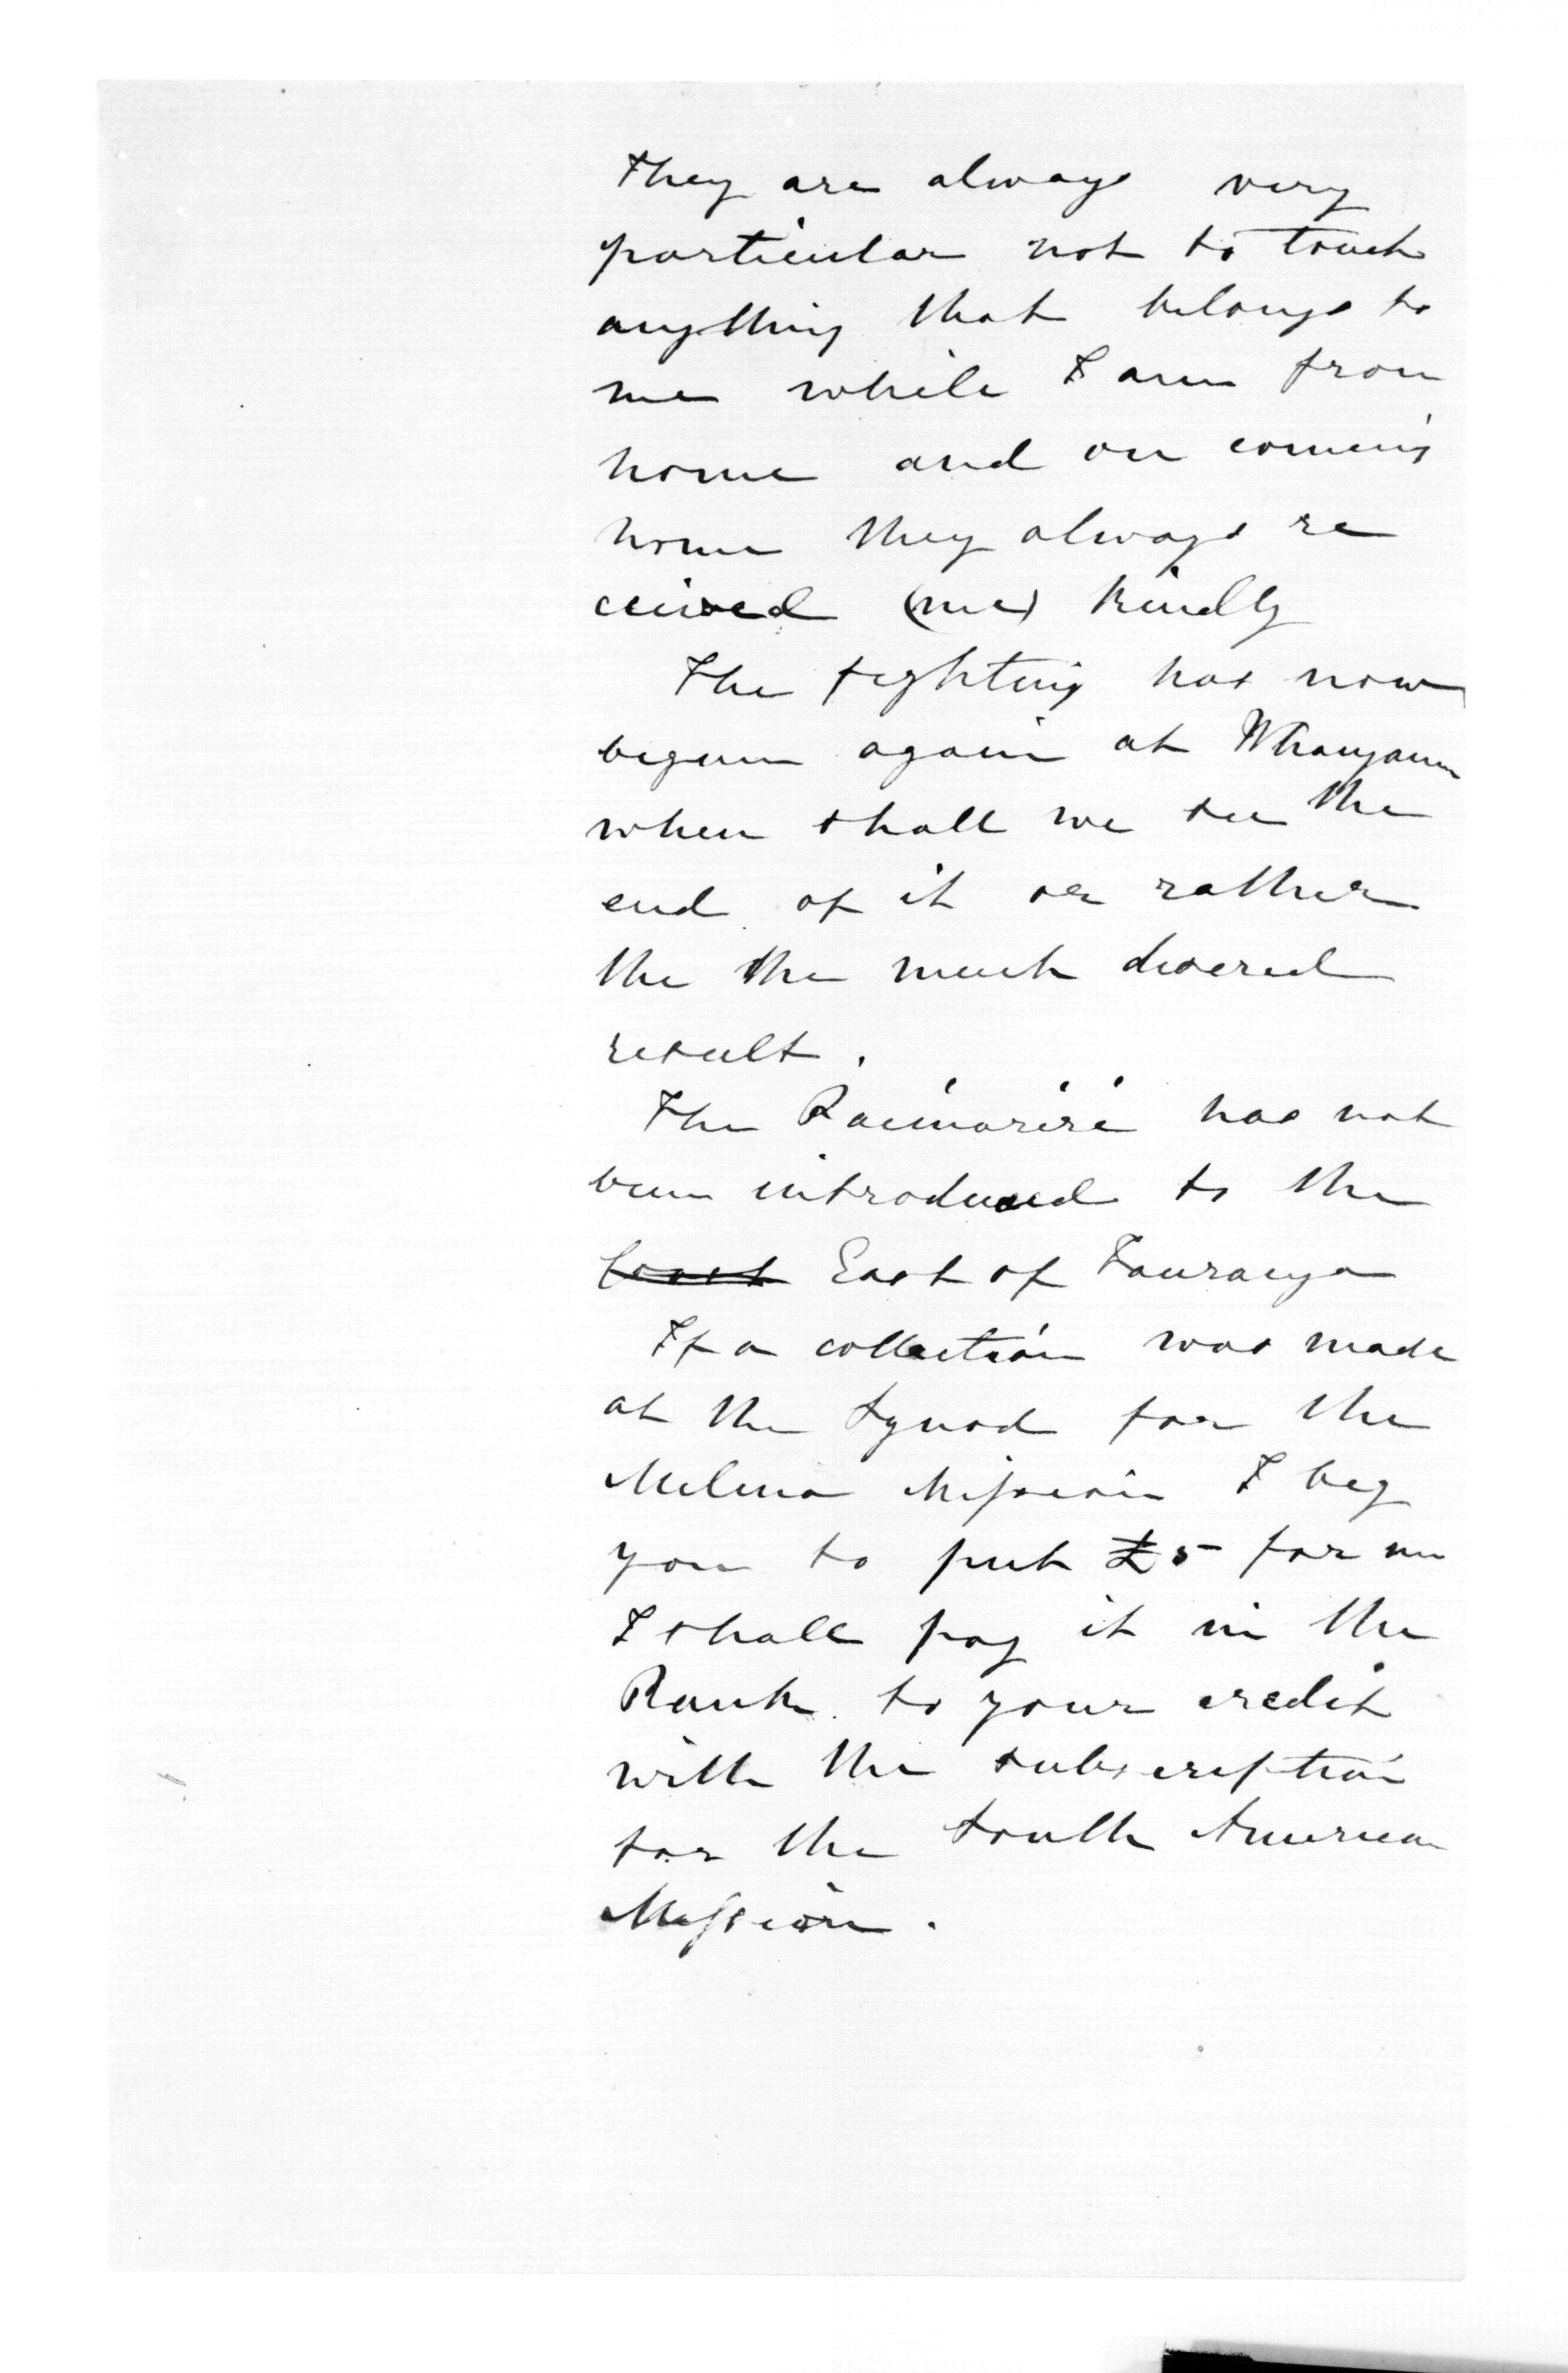 They are always very
particular not to touch
anything that belongs to
me while I am from
home and on coming
home they always re
ceived (me) kindly
The fighting has now
begun again at Whanganui
when shall we see the
end of it or rather
the the much desired
result.
The Paimarire has not
been introduced to the
Coast East of Tauranga
If a collection was made
at the Synod for the
Melina Mission I beg
you to put £5 for me
I shall pay it in the
Bank to your credit
with the subscription
for the South American
Mission.